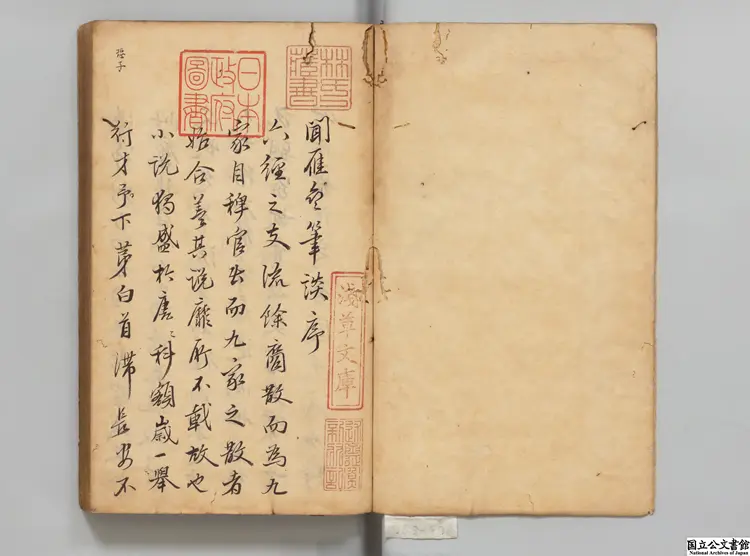 林氏藏書
日本政府圖書
聞雁齋筆談序
淺草文庫
六經之支流餘裔散而為九
家自稗官出而九家之散者
始合蓋其說靡所不載故也
小說獨盛於唐〻科額歲一舉
行才子下第白首滯長安不
国立公文書館
National Archives of Japan